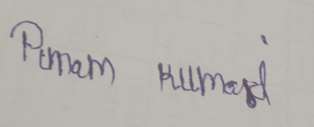 Punam Kumari